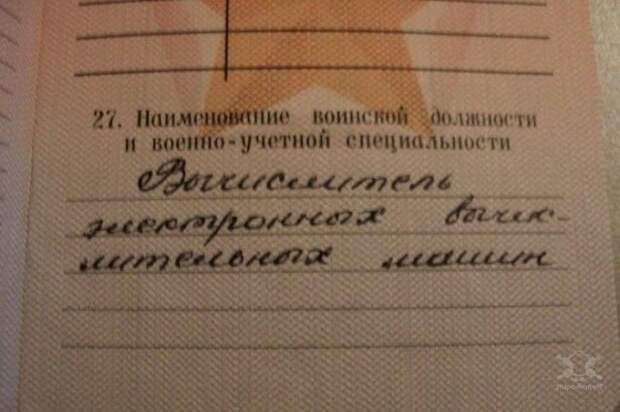 27. Наименование воинской должности
и военно-учетной специальности
Вычислитель
электронных вычис-
лительных машин